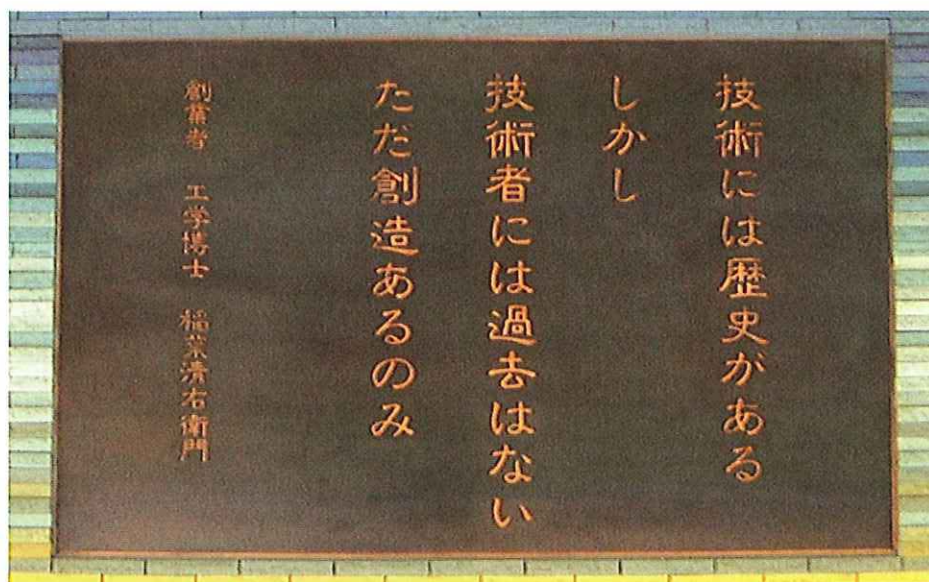 技術には歴史がある
しかし
技術者には過去はない
ただ創造あるのみ
創業者 工学博士 稲葉清右衛門